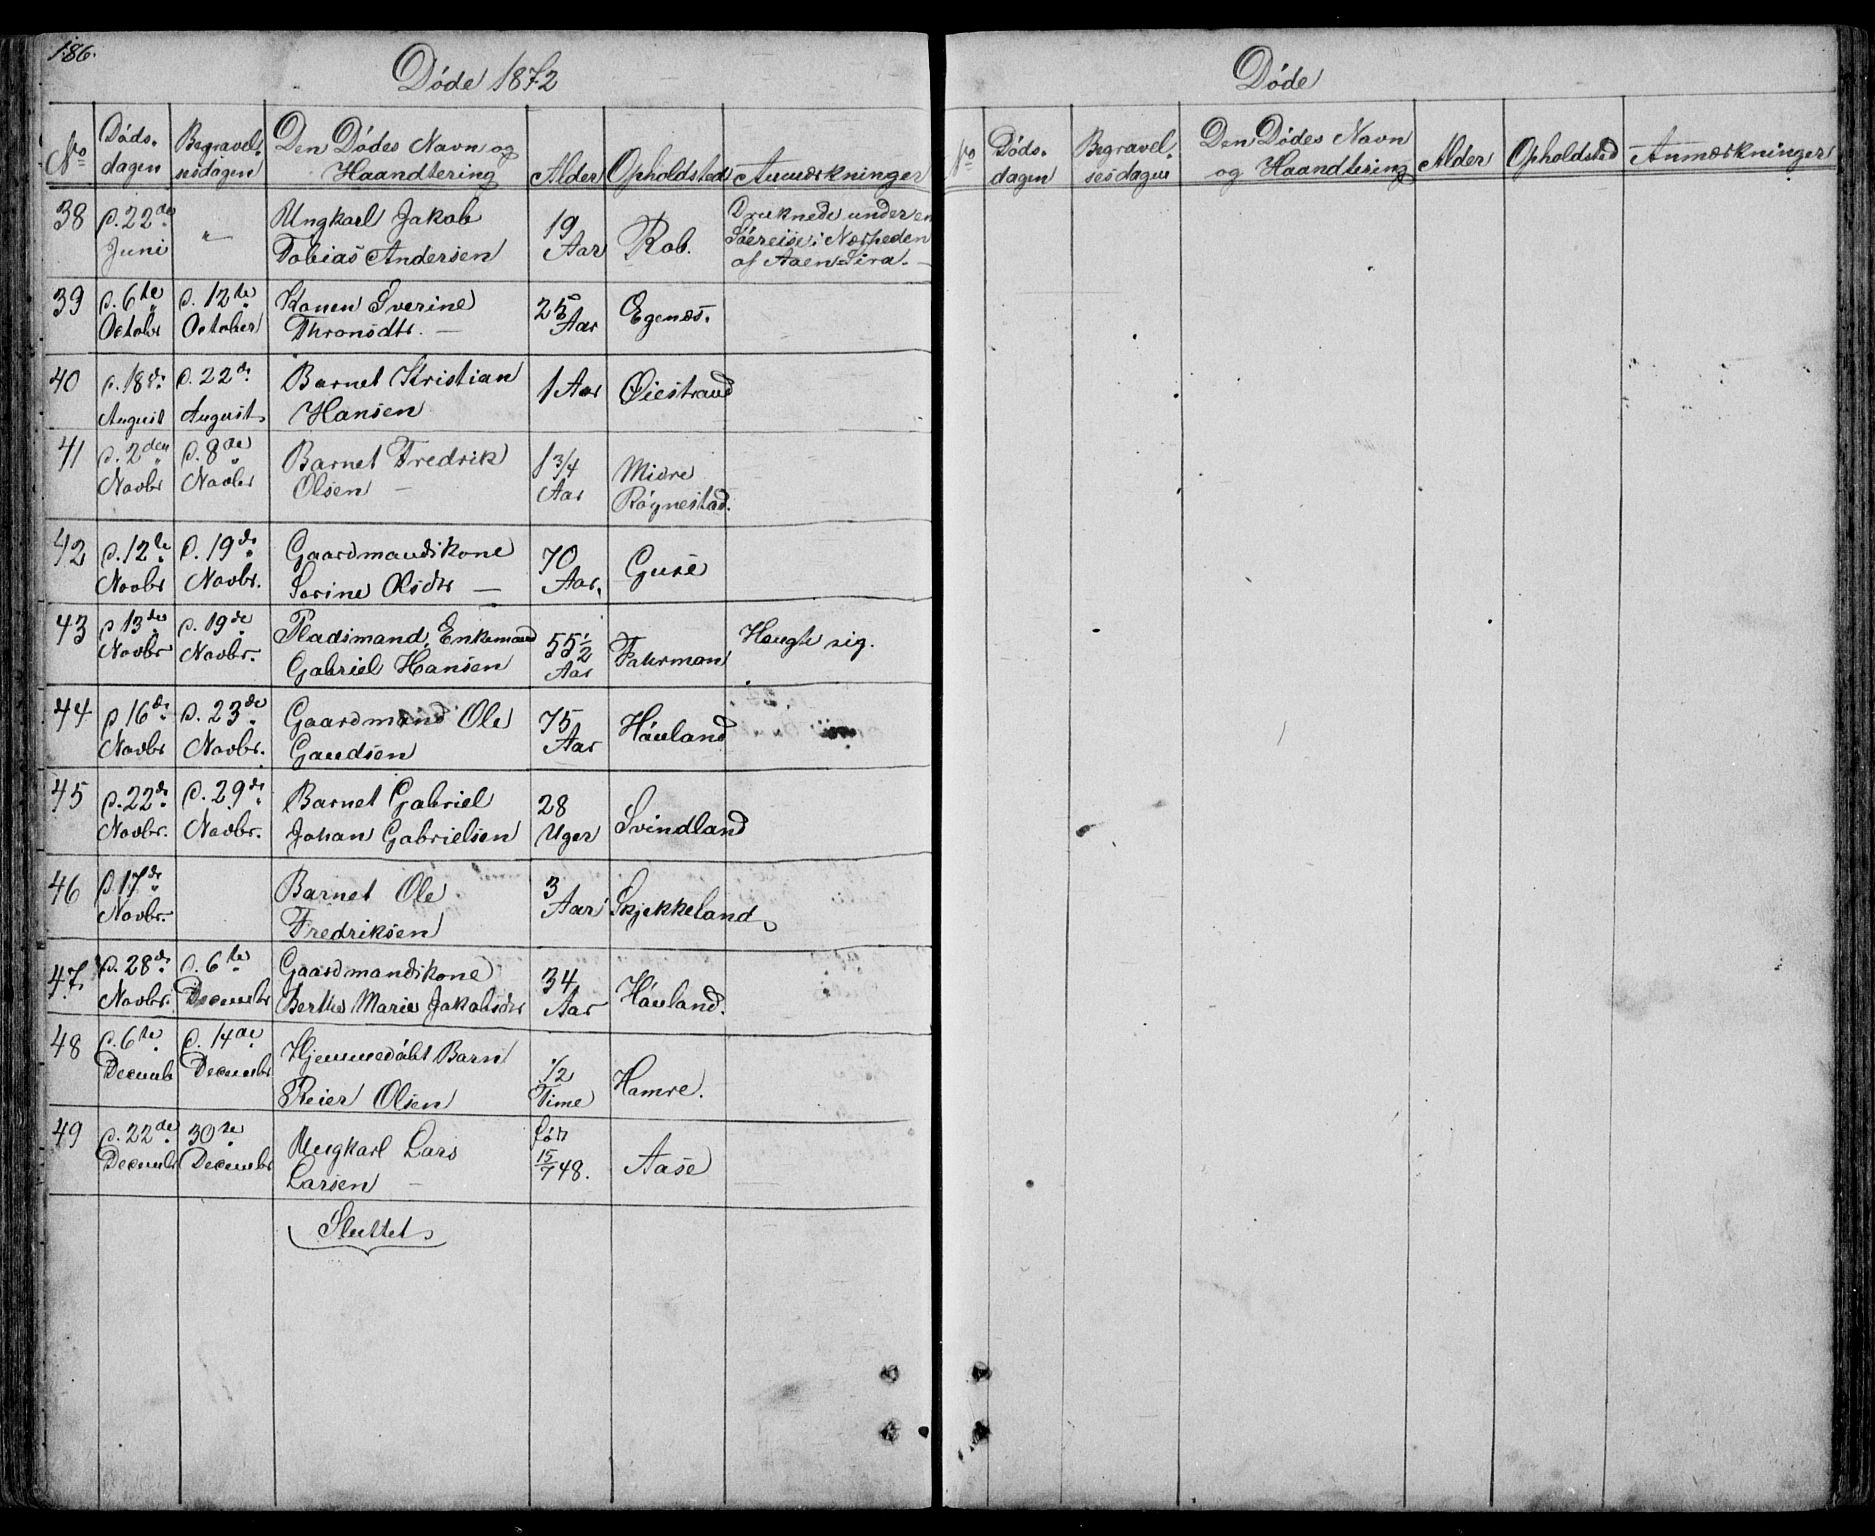 186.
Døde 1872
No
Døds-
dagen
Begravel-
sesdagen
Den Dødes Navn og
Haandtering
Alder
Opholdsted
Anmærkninger
38 d. 22de Juni " Ungkarl Jakob
Tobias Andersen 19 Aar Rob. Druknede under en
Søereise i Nærheden
af Aaen-Sira.
39 d. 6te Octobr d. 12te October Konen Sverine
Thronsdtr. — 25 Aar Egenæs.
40 d. 18de August d. 22de August Barnet Kristian
Hansen 1 Aar Øiestrand
41 d. 2den Novbr d. 8de Novbr Barnet Fredrik
Olsen — 1 3/4 Aar Midre
Røgnestad.
42 d. 12te Novbr d. 19de Novbr. Gaardmandskone
Sorine Olsdtr — 70 Aar. Guse
43 d 13de Novbr d. 19de Novbr. Pladsmand, Enkemand
Gabriel Hansen 55 1/2 Aar Hengte sig.
44 d 16de Novbr d. 23de Novbr. Gaardmand Ole
Gaudsen 75 Aar Håuland
45 d. 22de Novbr. d. 29de Novbr. Barnet Gabriel
Johan Gabrielsen 28 Uger Svindland
46 d. 17de Novbr. Barnet Ole
Fredriksen 3 Aar Skjekkeland
47. d. 28de Novbr. d. 6te Decembr Gaardmandskone
Berthe Marie Jakobsdtr 34 Aar Håuland.
48 d. 6te Decemb d. 14de Decembr Hjemmedøbt Barn
Reier Olsen 1/2 Time Hamre.
49 d. 22de Decembr 30te Decembr Ungkarl Lars
Larsen — født
15/7 48. Aase
Sluttet
Døde
No
Døds-
dagen
Begravel-
sesdagen
Den Dødes Navn
og Haandtering
Alder
Opholdsted
Anmærkninger